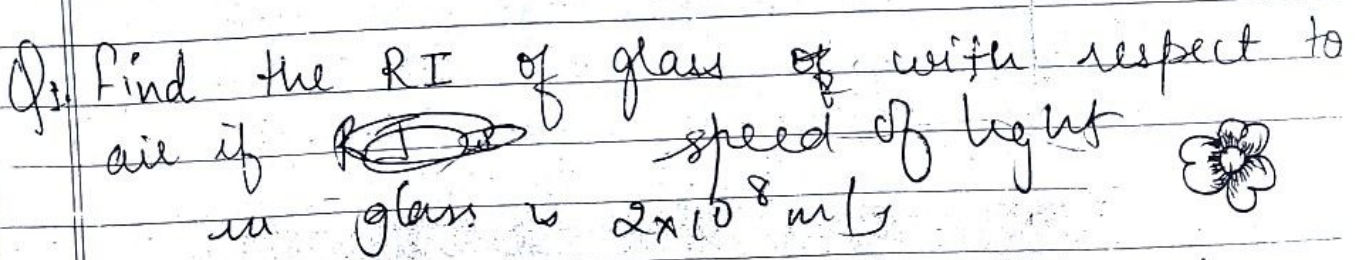 Q1. Find the RI of glass with respect to
air if speed of light
in glass is 2x10⁸ m/s